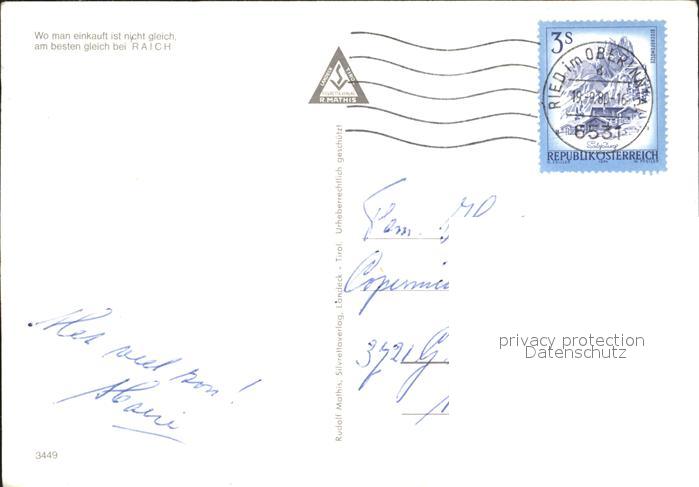 Wo man einkauft ist nicht gleich,
am besten gleich bei RAICH
R. MATHIS
3s
RIED im OBERINNTAL
6531
REPUBLIK ÖSTERREICH
Rudolf Mathis, Silvrettaverlag, Landeck - Tirol. Urheberrechtlich geschützt!
Fam.
Copernic
3721 G.
privacy protection
Datenschutz
Met veel zon!
3449